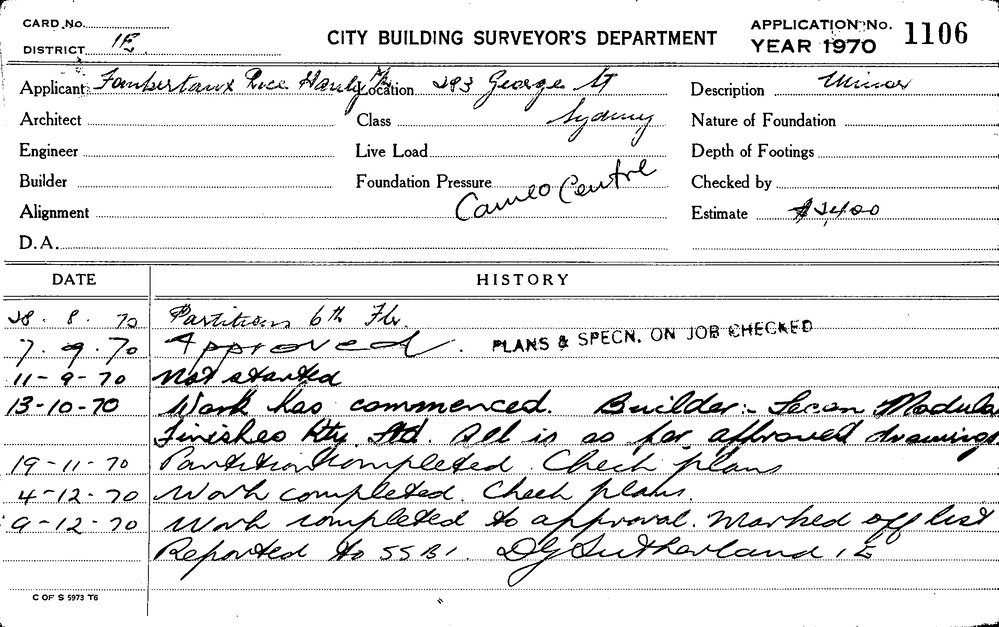 CARD No.
DISTRICT 1E
CITY BUILDING SURVEYOR'S DEPARTMENT
APPLICATION No. 1106
YEAR 1970
Applicant Rice Location 293 George St
Description Minor
Architect
Class Sydney
Nature of Foundation
Engineer
Live Load
Depth of Footings
Builder
Foundation Pressure
Cameo Centre
Checked by
Alignment
Estimate $2,400
D.A.
DATE HISTORY
28. 8. 70 Partitions 6th Flr.
7. 9. 70 Approved. PLANS & SPECN. ON JOB CHECKED
11-9-70 Not started
13-10-70 Work has commenced. Builder:- Modula
Finishes Pty. Ltd. All is as per approved drawings
19-11-70 Partition completed. Check plans
4-12-70 Work completed. Check plans.
9-12-70 Work completed to approval. Marked off list
Reported to SSBI. DG Sutherland 1E
C OF S 5973 T6